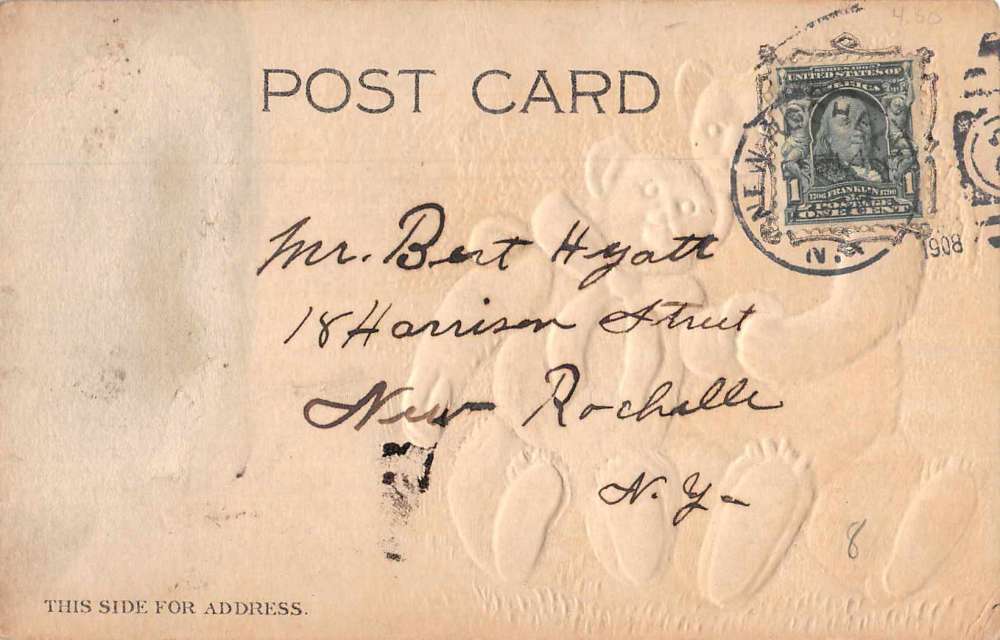 4.50
POST CARD
SERIES 1902
UNITED STATES OF
AMERICA
1706 FRANKLIN 1790
1 POSTAGE 1
ONE CENT
N.Y.
1908
Mr. Bert Hyatt
18 Harrison Street
New Rochelle
N.Y.
8
THIS SIDE FOR ADDRESS.